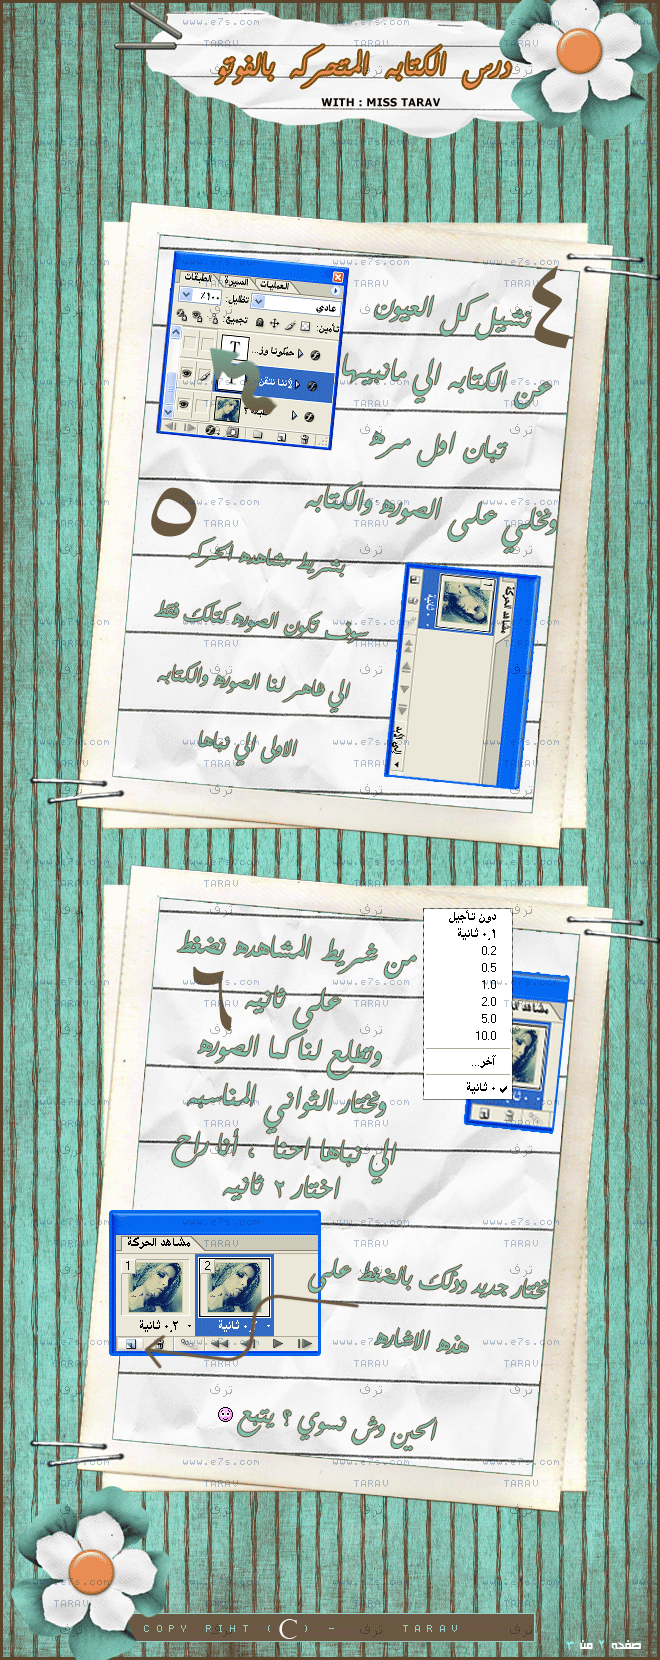 درس الكتابه المتحركه بالفوتو
WITH : MISS TARAV
٤
نشيل كل العيون
عن الكتابه الي مانبيها
تبان اول مره
العمليات السيرة الطبقات
عادي تظليل: ١٠٠٪
تأمين: تجميع:
٥
ونخلي على الصوره والكتابه
بشريط مشاهده الحركه
سوف تكون الصوره كذلك فقط
الي ظاهر لنا الصوره والكتابه
الاولى الي نباها
مشاهد الحركة
1
٠ ثانية
٦
من شريط المشاهده نضغط
على ثانيه
وتطلع لنا كما الصوره
ونختار الثواني المناسبه
الي نباها احنا ، أنا راح
اختار ٢ ثانيه
دون تأجيل
٠٫١ ثانية
0.2
0.5
1.0
2.0
5.0
10.0
آخر...
٠ ثانية
مشاهد الحركة
1 2
٠٫٢ ثانية
٠٫٢ ثانية
نختار جديد وذلك بالضغط على
هذه الاشاره
الحين وش نسوي ؟ يتبع
COPY RIHT (C) - TARAV
صفحه ٢ من ٣
www.e7s.com
TARAV
ترف